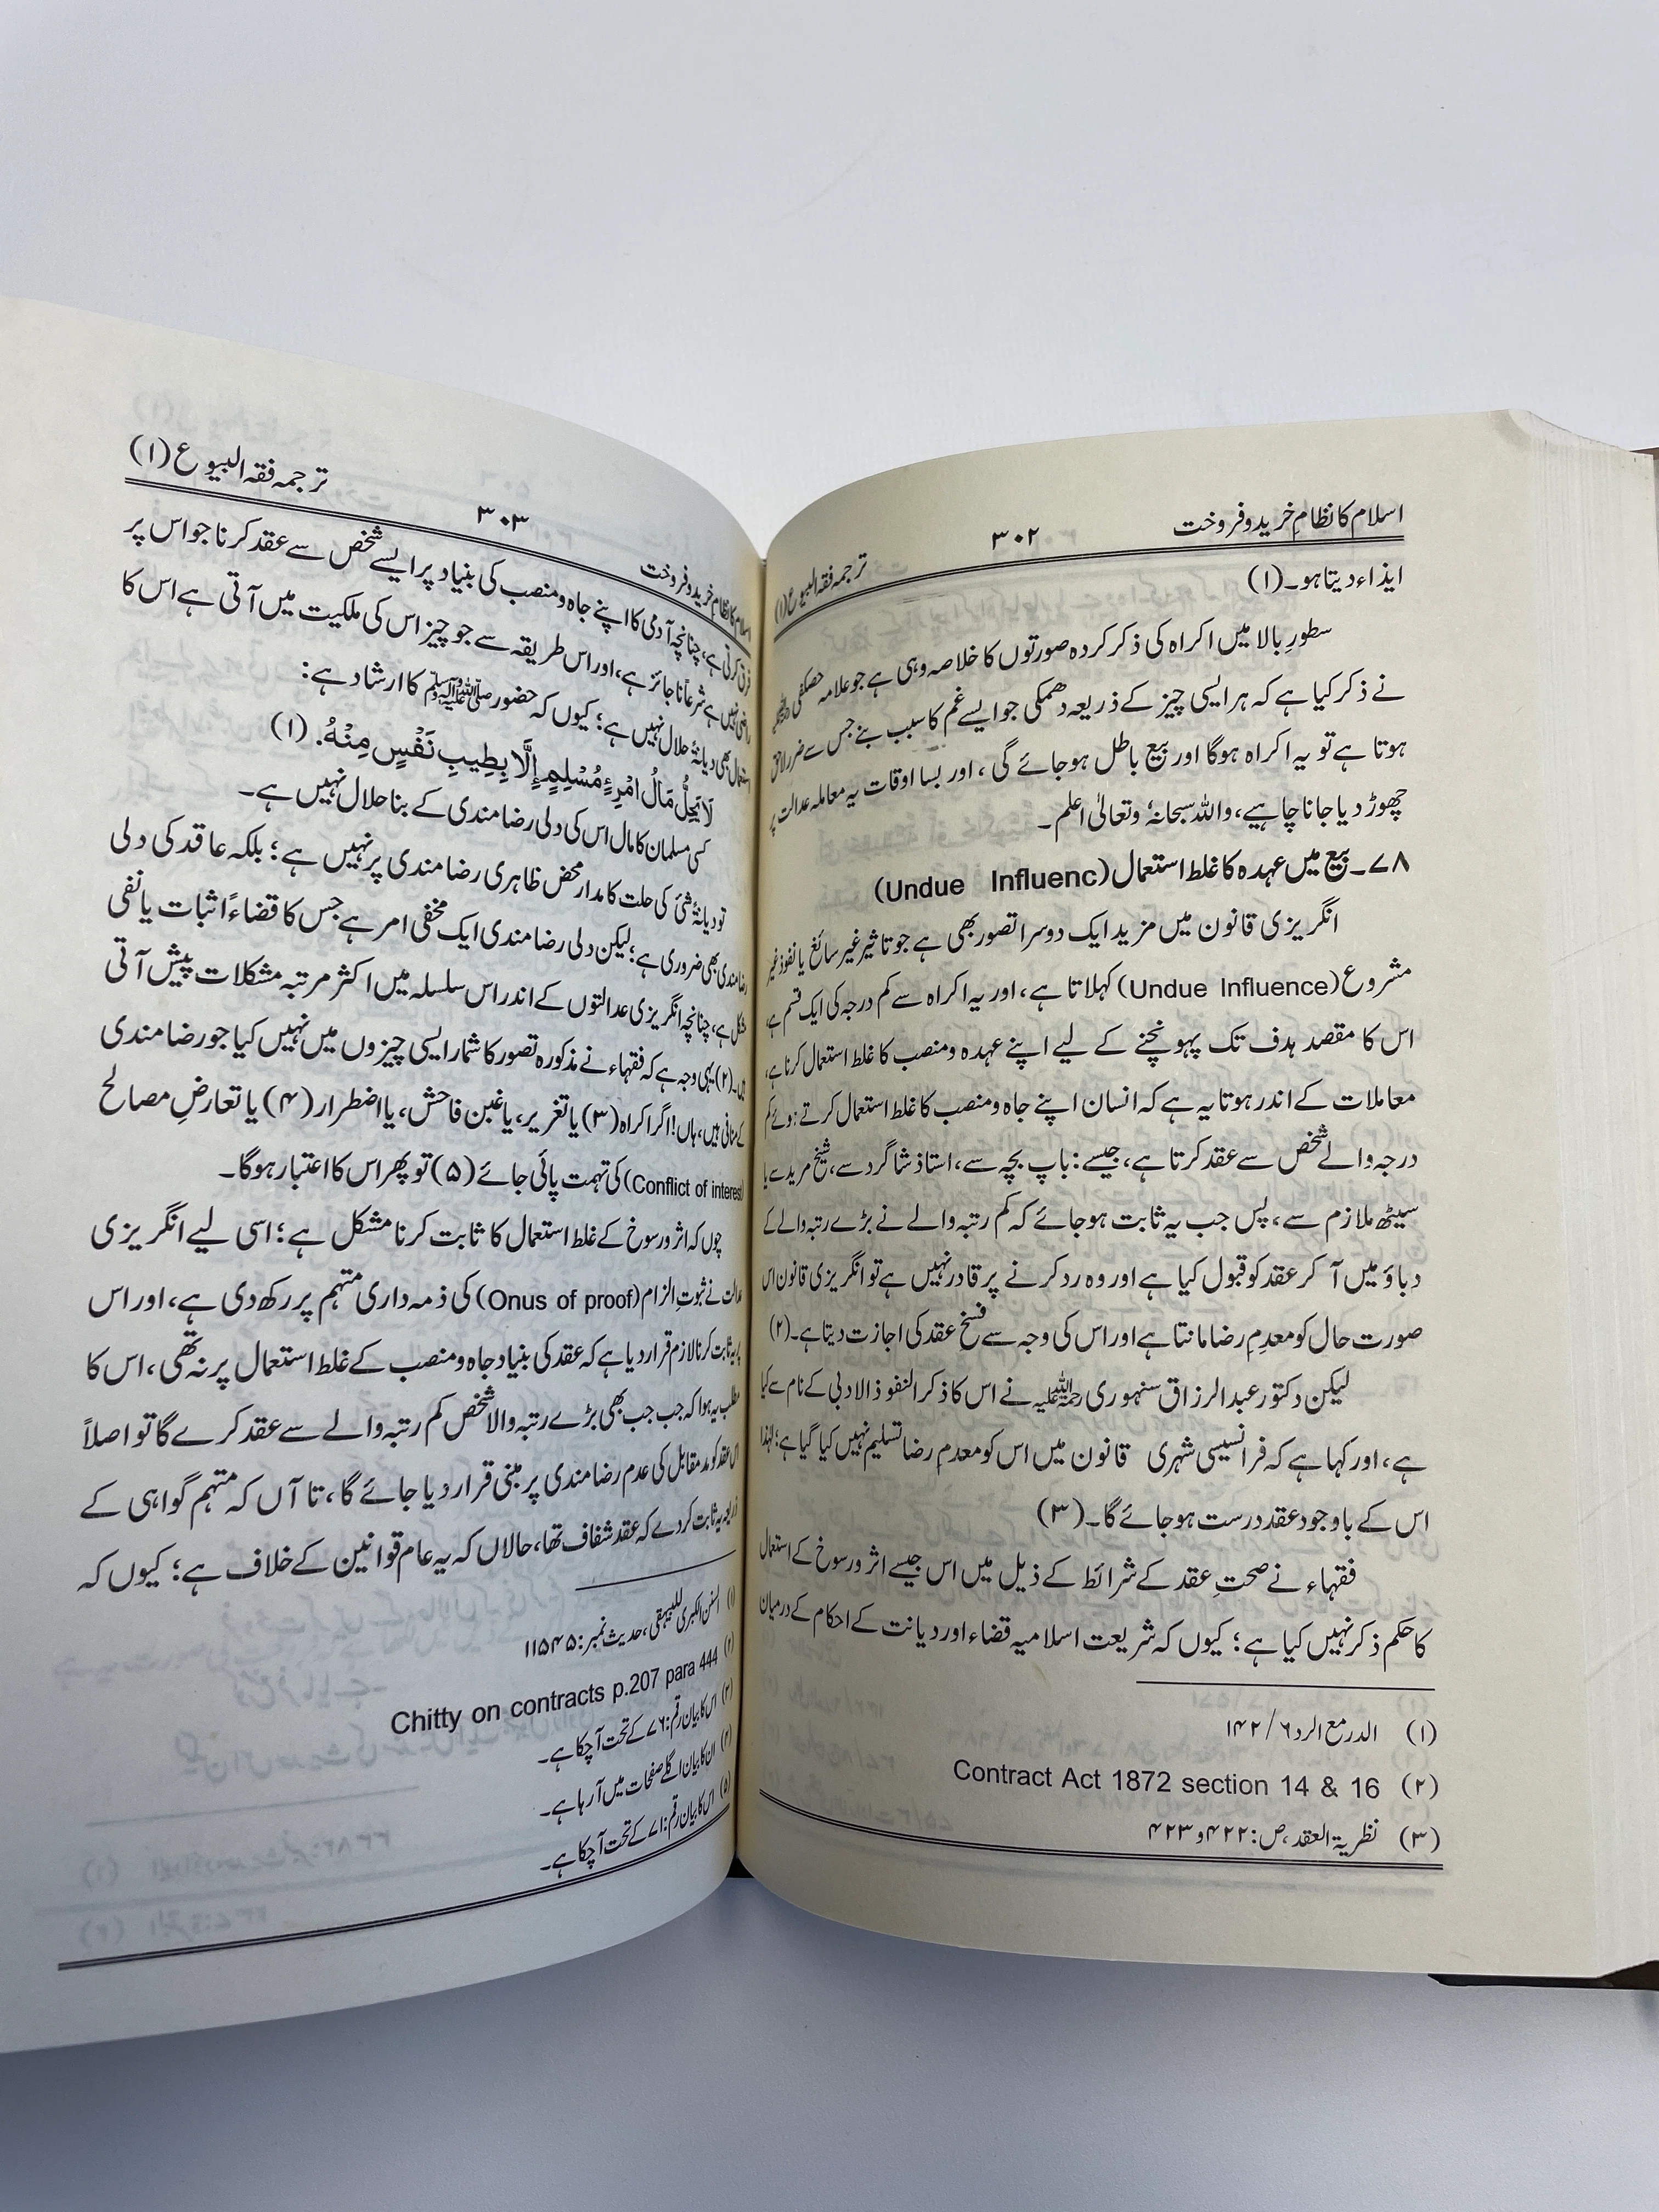 اسلام کا نظامِ خرید و فروخت ۳۰۲ ترجمہ فقہ البیوع (۱)
ایذاء دیتا ہو۔ (۱)
سطورِ بالا میں اکراہ کی ذکر کردہ صورتوں کا خلاصہ وہی ہے جو علامہ حصکفی
نے ذکر کیا ہے کہ ہر ایسی چیز کے ذریعہ دھمکی جو ایسے غم کا سبب بنے جس سے ضرر لاحق
ہوتا ہے تو یہ اکراہ ہوگا اور بیع باطل ہوجائے گی، اور بسا اوقات یہ معاملہ عدالت پر
چھوڑ دیا جانا چاہیے، واللہ سبحانہٗ وتعالیٰ اعلم۔
۷۸۔ بیع میں عہدہ کا غلط استعمال (Undue Influenc)
انگریزی قانون میں مزید ایک دوسرا تصور بھی ہے جو تاثیر غیر سائغ یا نفوذ غیر
مشروع (Undue Influence) کہلاتا ہے، اور یہ اکراہ سے کم درجہ کی ایک قسم ہے،
اس کا مقصد ہدف تک پہونچنے کے لیے اپنے عہدہ ومنصب کا غلط استعمال کرنا ہے،
معاملات کے اندر ہوتا یہ ہے کہ انسان اپنے جاہ ومنصب کا غلط استعمال کرتے ہوئے کم
درجہ والے شخص سے عقد کرتا ہے، جیسے: باپ بچہ سے، استاذ شاگرد سے، شیخ مرید سے یا
سیٹھ ملازم سے، پس جب یہ ثابت ہوجائے کہ کم رتبہ والے نے بڑے رتبہ والے کے
دباؤ میں آ کر عقد کو قبول کیا ہے اور وہ رد کرنے پر قادر نہیں ہے تو انگریزی قانون اس
صورت حال کو معدِمِ رضا مانتا ہے اور اس کی وجہ سے فسخِ عقد کی اجازت دیتا ہے۔ (۲)
لیکن دکتور عبدالرزاق سنہوری رحمۃ اللہ علیہ نے اس کا ذکر النفوذ الادبی کے نام سے کیا
ہے، اور کہا ہے کہ فرانسیسی شہری قانون میں اس کو معدمِ رضا تسلیم نہیں کیا گیا ہے؛ لہٰذا
اس کے باوجود عقد درست ہوجائے گا۔ (۳)
فقہاء نے صحتِ عقد کے شرائط کے ذیل میں اس جیسے اثر ورسوخ کے استعمال
کا حکم ذکر نہیں کیا ہے؛ کیوں کہ شریعت اسلامیہ قضاء اور دیانت کے احکام کے درمیان
(۱) الدر مع الرد ۶/ ۱۴۲
(۲) Contract Act 1872 section 14 & 16
(۳) نظریۃ العقد، ص: ۴۲۲ و ۴۲۳
اسلام کا نظامِ خرید و فروخت ۳۰۳ ترجمہ فقہ البیوع (۱)
فرق کرتی ہے، چنانچہ آدمی کا اپنے جاہ ومنصب کی بنیاد پر ایسے شخص سے عقد کرنا جو اس پر
راضی نہیں ہے شرعاً ناجائز ہے، اور اس طریقہ سے جو چیز اس کی ملکیت میں آتی ہے اس کا
استعمال بھی دیانۃً حلال نہیں ہے؛ کیوں کہ حضور ﷺ کا ارشاد ہے:
لَا یَحِلُّ مَالُ امْرِءٍ مُسْلِمٍ إِلَّا بِطِیبِ نَفْسٍ مِنْهُ. (۱)
کسی مسلمان کا مال اس کی دلی رضامندی کے بنا حلال نہیں ہے۔
تو دیانۃً شئ کی حلت کا مدار محض ظاہری رضامندی پر نہیں ہے؛ بلکہ عاقد کی دلی
رضامندی بھی ضروری ہے؛ لیکن دلی رضامندی ایک مخفی امر ہے جس کا قضاءً اثبات یا نفی
مشکل ہے، چنانچہ انگریزی عدالتوں کے اندر اس سلسلہ میں اکثر مرتبہ مشکلات پیش آتی
ہیں۔ (۲) یہی وجہ ہے کہ فقہاء نے مذکورہ تصور کا شمار ایسی چیزوں میں نہیں کیا جو رضامندی
کے منافی ہیں، ہاں! اگر اکراہ (۳) یا تغریر، یا غبن فاحش، یا اضطرار (۴) یا تعارضِ مصالح
(Conflict of interest) کی تہمت پائی جائے (۵) تو پھر اس کا اعتبار ہوگا۔
چوں کہ اثر ورسوخ کے غلط استعمال کا ثابت کرنا مشکل ہے؛ اسی لیے انگریزی
عدالت نے ثبوتِ الزام (Onus of proof) کی ذمہ داری متہم پر رکھ دی ہے، اور اس
پر یہ ثابت کرنا لازم قرار دیا ہے کہ عقد کی بنیاد جاہ ومنصب کے غلط استعمال پر نہ تھی، اس کا
مطلب یہ ہوا کہ جب جب بھی بڑے رتبہ والا شخص کم رتبہ والے سے عقد کرے گا تو اصلاً
اس عقد کو مدمقابل کی عدم رضامندی پر مبنی قرار دیا جائے گا، تا آں کہ متہم گواہی کے
ذریعہ یہ ثابت کردے کہ عقد شفاف تھا، حالاں کہ یہ عام قوانین کے خلاف ہے؛ کیوں کہ
(۱) السنن الکبریٰ للبیہقی، حدیث نمبر: ۱۱۵۴۵
(۲) Chitty on contracts p.207 para 444
(۳) اس کا بیان رقم: ۷۶ کے تحت آچکا ہے۔
(۴) ان کا بیان اگلے صفحات میں آرہا ہے۔
(۵) اس کا بیان رقم: ۷۱ کے تحت آچکا ہے۔